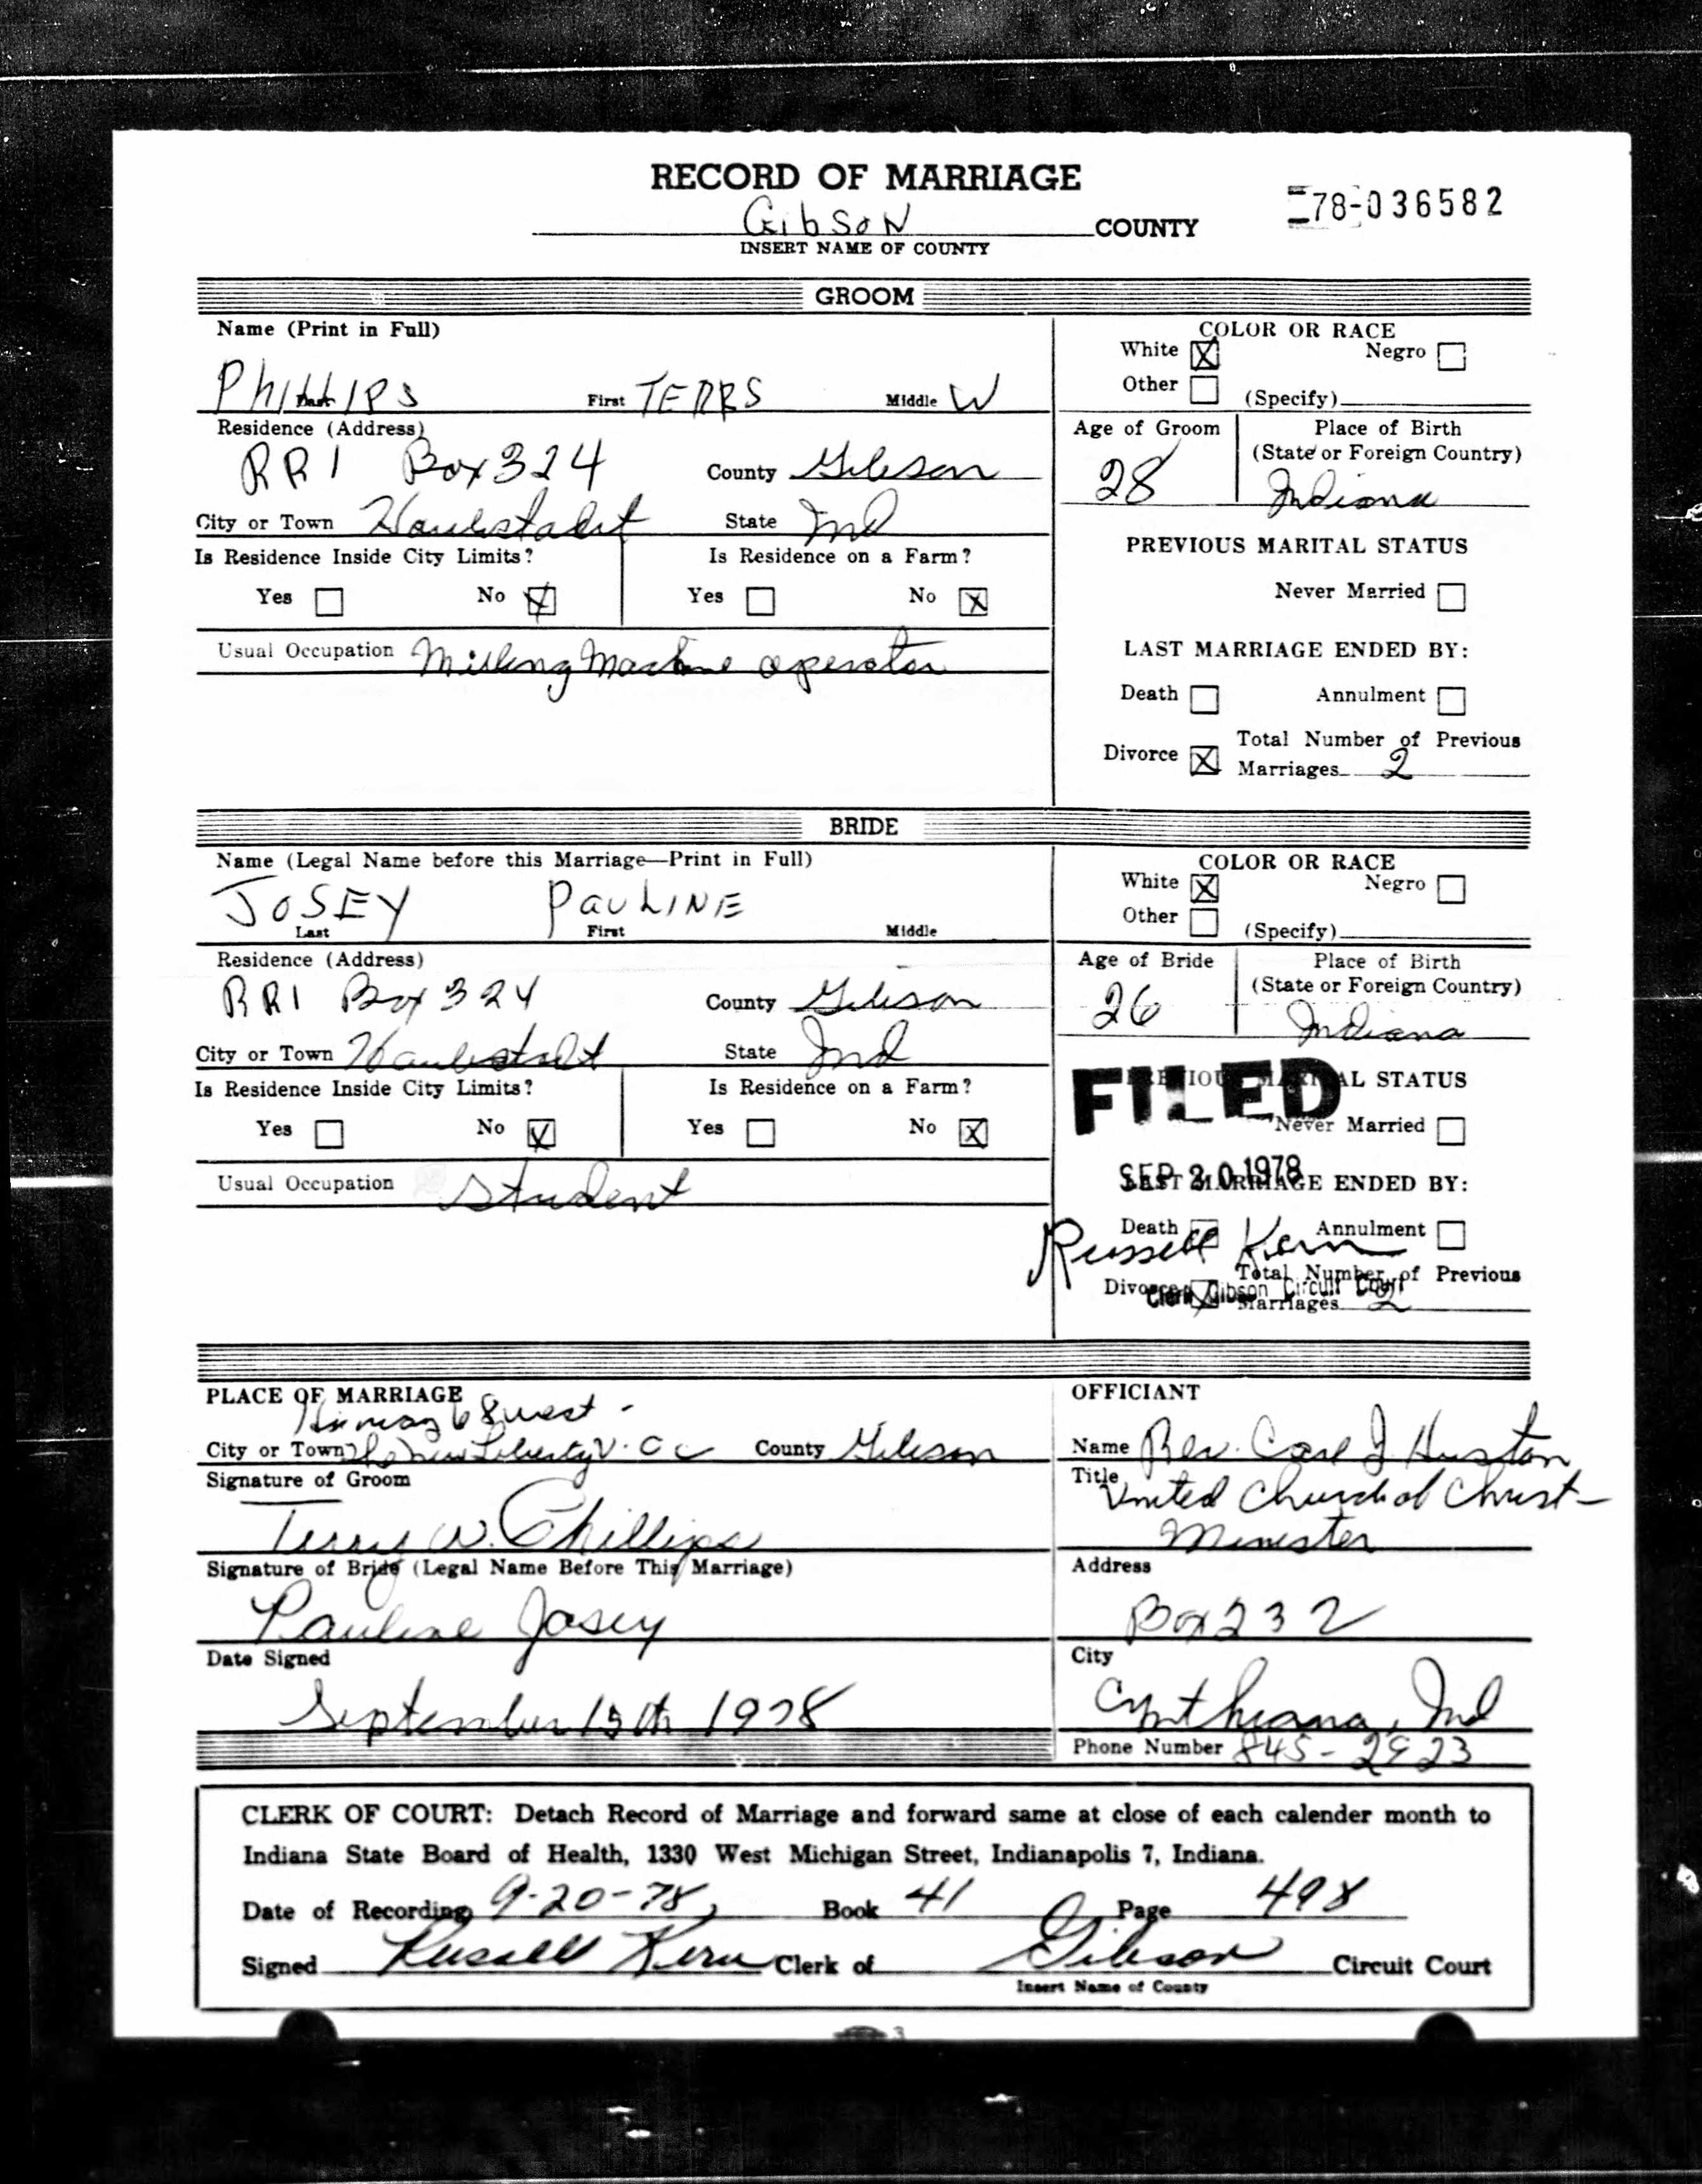 RECORD OF MARRIAGE
78-036582
Gibson COUNTY
INSERT NAME OF COUNTY
GROOM
Name (Print in Full)
Phillips TERRS W
Last First Middle
COLOR OR RACE
White X Negro
Other (Specify)
Residence (Address)
RR1 Box 324 County Gibson
City or Town Haubstadt State Ind
Age of Groom 28
Place of Birth
(State or Foreign Country)
Indiana
Is Residence Inside City Limits? Is Residence on a Farm?
Yes No X Yes No X
Usual Occupation Milling Machine operator
PREVIOUS MARITAL STATUS
Never Married
LAST MARRIAGE ENDED BY:
Death Annulment
Divorce X Total Number of Previous
Marriages 2
BRIDE
Name (Legal Name before this Marriage—Print in Full)
JOSEY PauLINE
Last First Middle
COLOR OR RACE
White X Negro
Other (Specify)
Residence (Address)
RR1 Box 324 County Gibson
City or Town Haubstadt State Ind
Age of Bride 26
Place of Birth
(State or Foreign Country)
Indiana
Is Residence Inside City Limits? Is Residence on a Farm?
Yes No X Yes No X
Usual Occupation Student
PREVIOUS MARITAL STATUS
FILED
Never Married
SEP 20 1978
LAST MARRIAGE ENDED BY:
Death Annulment
Russell Kern
Divorce X Total Number of Previous
Clerk Gibson Circuit Court
Marriages 2
PLACE OF MARRIAGE
68 west -
City or Town New Liberty County Gibson
Signature of Groom
Terry W. Phillips
Signature of Bride (Legal Name Before This Marriage)
Pauline Josey
Date Signed
September 15th 1978
OFFICIANT
Name Rev. Carl J Huston
Title United Church of Christ -
Minister
Address
Box 232
City
Cynthiana, Ind
Phone Number 845-2923
CLERK OF COURT: Detach Record of Marriage and forward same at close of each calender month to
Indiana State Board of Health, 1330 West Michigan Street, Indianapolis 7, Indiana.
Date of Recording 9-20-78 Book 41 Page 498
Signed Russell Kern Clerk of Gibson Circuit Court
Insert Name of County
3